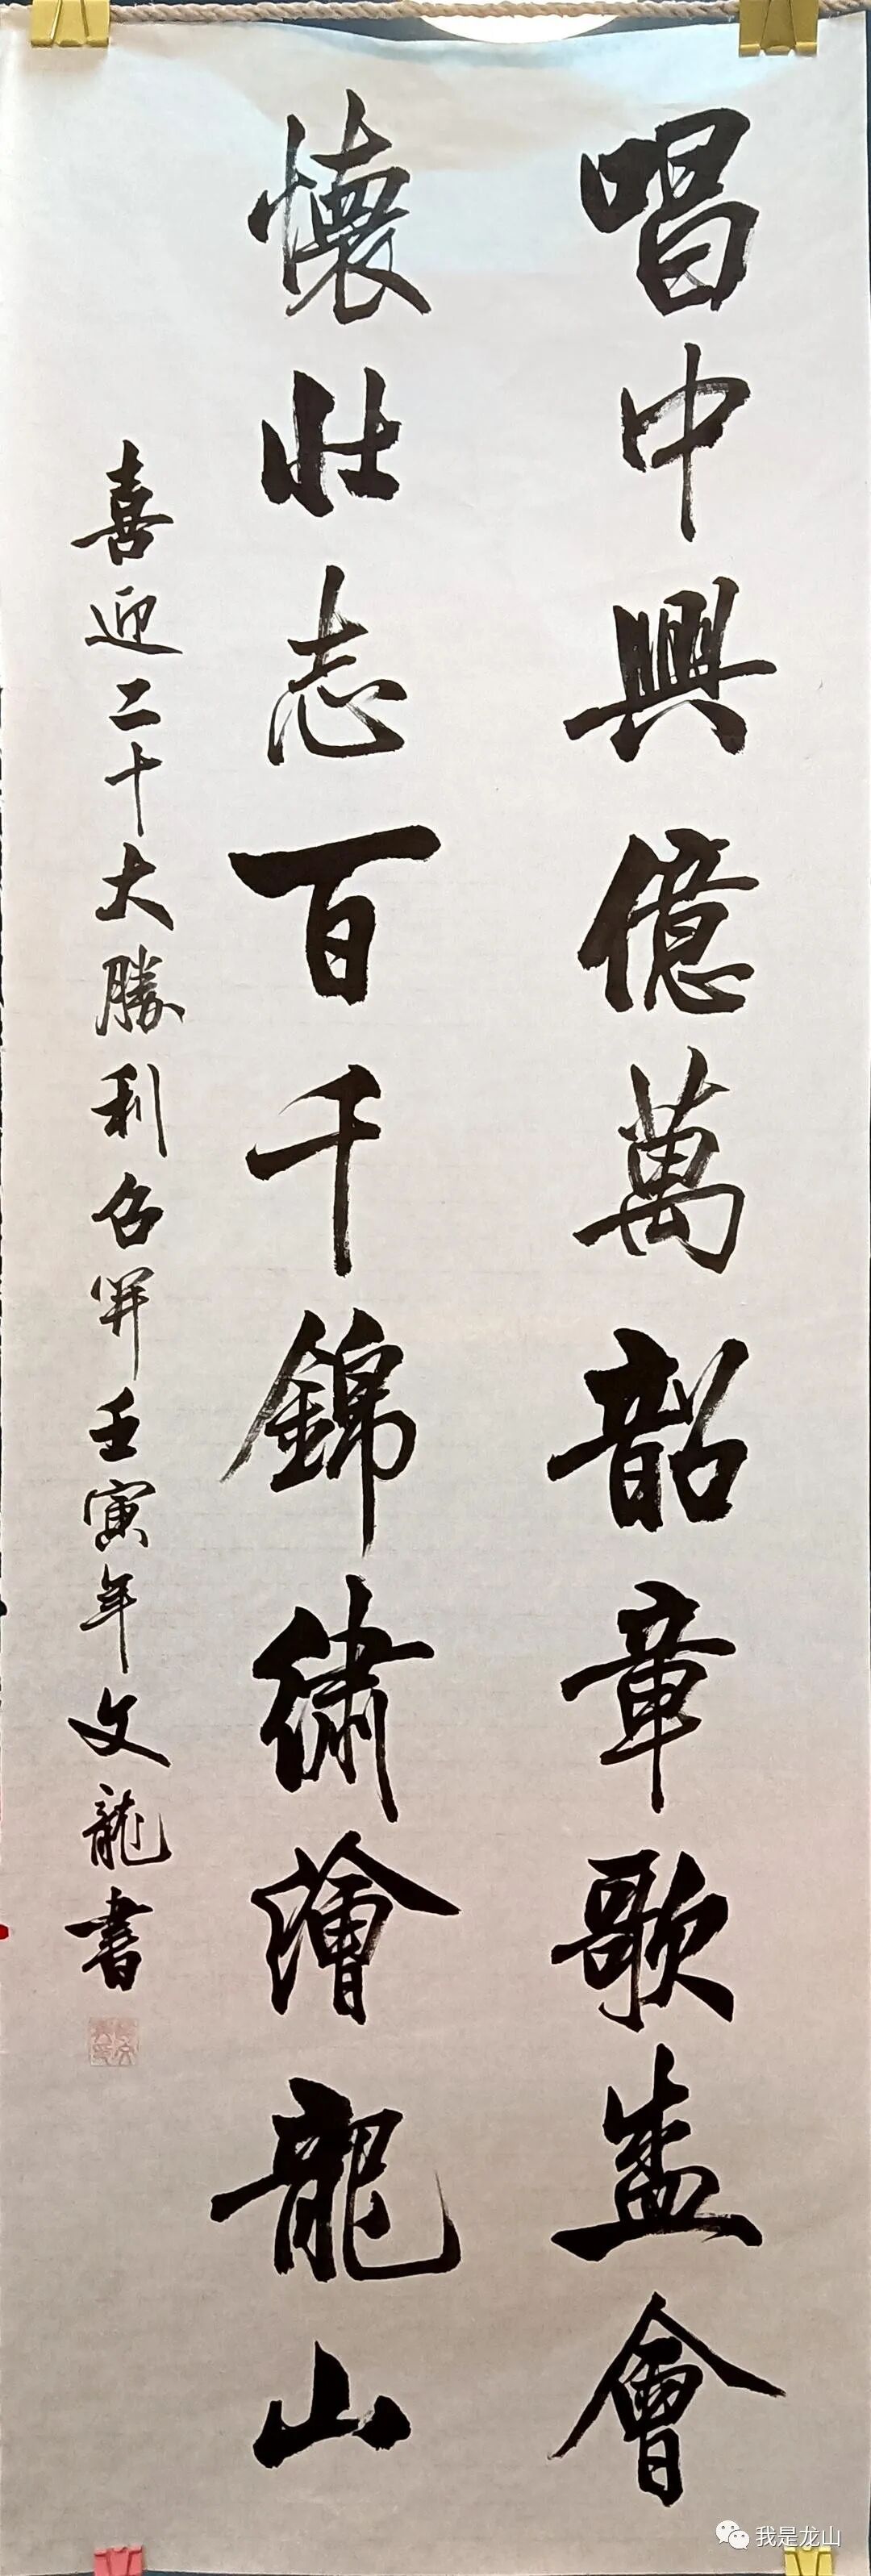 唱中興億萬韶章歌盛會
懷壯志百千錦繡繪龍山
喜迎二十大勝利召開壬寅年文龍書
我是龙山